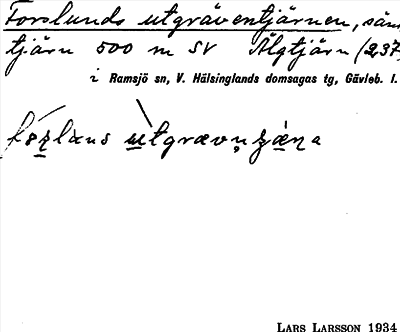 Forslunds utgräventjärnen, sän
tjärn 500 m SV Älgtjärn (237
i Ramsjö sn, V. Hälsinglands domsagas tg, Gävleb. l.
LARS LARSSON 1934